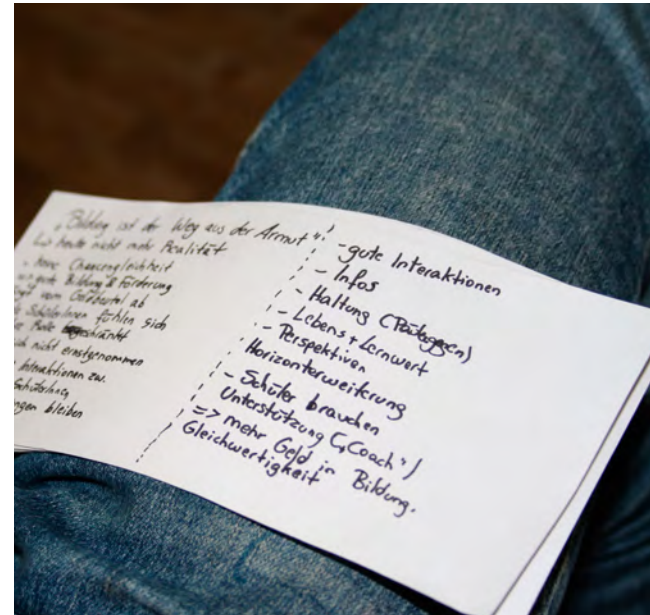 „Bildung ist der Weg aus der Armut“!
↳ heute nicht mehr Realität
keine Chancengleichheit
gute Bildung & Förderung
vom Geldbeutel ab
SchülerInnen fühlen sich
Rolle
nicht ernstgenommen
Interaktionen zw.
SchülerInnen
bleiben
- gute Interaktionen
- Infos
- Haltung (Pädagogen)
- Lebens + Lernwert
- Perspektiven
Horizonterweiterung
- Schüler brauchen
Unterstützung („Coach“)/
=> mehr Geld in Bildung.
Gleichwertigkeit